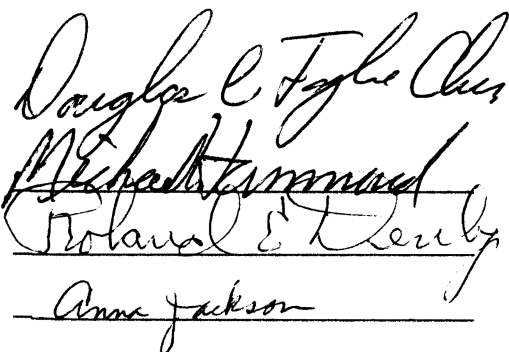 Douglas C
Michael Hammond
Roland E Derby
Anna Jackson